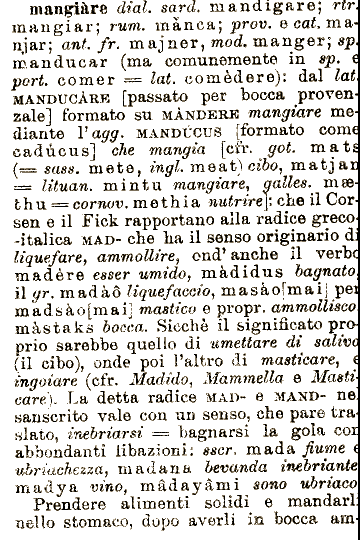 mangiàre dial. sard. mandigare; rtr.
mangiar; rum. mànca; prov. e cat. ma-
njar; ant. fr. majner, mod. manger; sp.
manducar (ma comunemente in sp. e
port. comer = lat. comèdere): dal lat.
MANDUCÀRE [passato per bocca proven-
zale] formato su MÀNDERE mangiare me-
diante l'agg. MANDÙCUS [formato come
cadúcus] che mangia [cfr. got. mats
(= sass. mete, ingl. meat) cibo, matjan
= lituan. mintu mangiare, galles. mæ-
thu = cornov. methia nutrire]: che il Cor-
sen e il Fick rapportano alla radice greco
-italica MAD- che ha il senso originario di
liquefare, ammollire, ond'anche il verbo
madère esser umido, màdidus bagnato,
il gr. madàô liquefaccio, masào[mai] per
madsào[mai] mastico e propr. ammollisco,
màstaks bocca. Sicchè il significato pro-
prio sarebbe quello di umettare di saliva
(il cibo), onde poi l'altro di masticare,
ingoiare (cfr. Madido, Mammella e Masti-
care). La detta radice MAD- e MAND- nel
sanscrito vale con un senso, che pare tra-
slato, inebriarsi = bagnarsi la gola con
abbondanti libazioni: sscr. mada fiume e
ubriachezza, madana bevanda inebriante,
madya vino, mâdayâmi sono ubriaco.
Prendere alimenti solidi e mandarli
nello stomaco, dopo averli in bocca am-